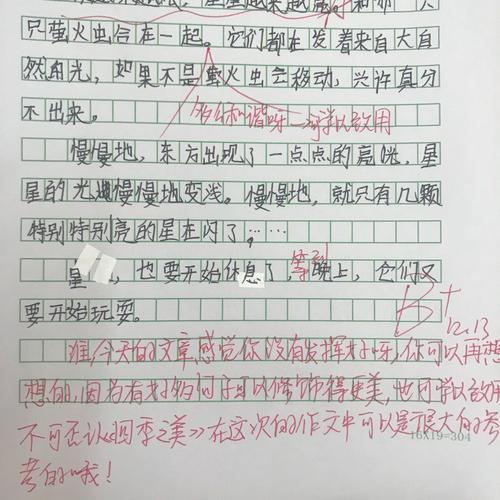 星星越来越
只萤火虫合在一起。它们都在发着来自大自
然的光，如果不是萤火虫会移动，兴许真分
不出来。
多么和谐呀 可学以致用
慢慢地，东方出现了一点点的亮光，星
星的光也慢慢慢地变浅。慢慢地，就只有几颗
特别特别亮的星在闪了；……
星，也要开始休息了，等到晚上，它们又
要开始玩耍。
B+
12.13
今天的文章感觉你没有发挥好呀，你可以再想
想的，因为有好多句子可以修饰得更美，也可学以致用
不可否认《四季之美》在这次的作文中可以是很大的参
考的哦！
16X19=304